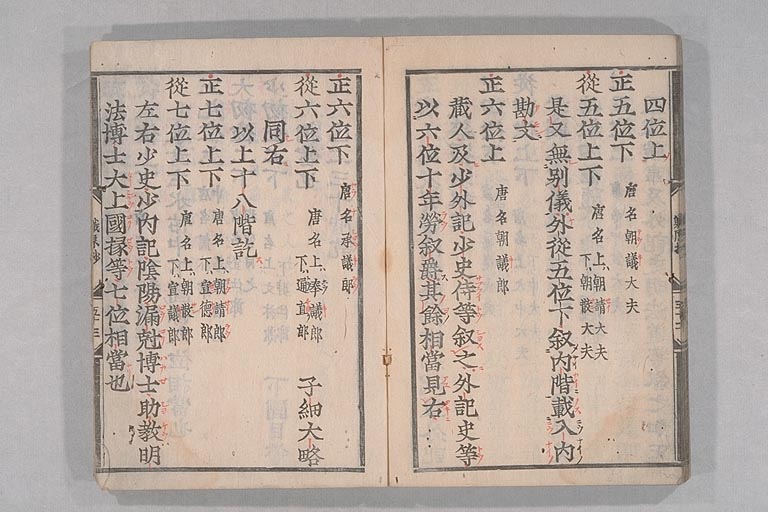 四位上
正五位下 唐名朝議大夫
從五位上下 唐名上、朝請大夫 下、朝散大夫
是又無別儀外從五位下叙内階載入内
勘文
正六位上 唐名朝議郎
藏人及少外記少史侍等叙之外記史等
以六位十年勞叙爵其餘相當見右
正六位下 唐名承議郎
從六位上下 唐名上、奉議郎 下、通直郎 子細大略
同右
以上十八階訖
正七位上下 唐名上、朝請郎 下、宣德郎
從七位上下 唐名上、朝散郎 下、宣議郎
左右少史少内記陰陽漏尅博士助教明
法博士大上國掾等七位相當也